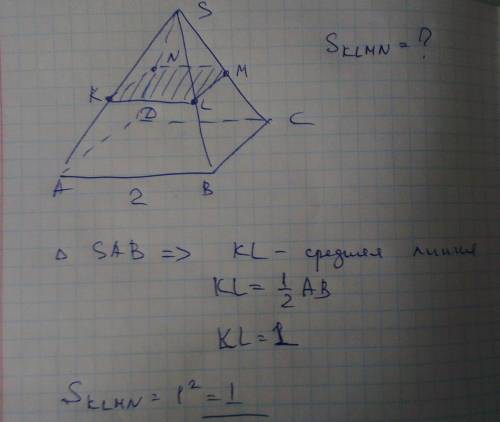 S
N
K
M
L
D
C
A
B
2
S KLMN = ?
Δ SAB => KL - средняя линия
KL = 1/2 AB
KL = 1
S KLMN = 1² = 1